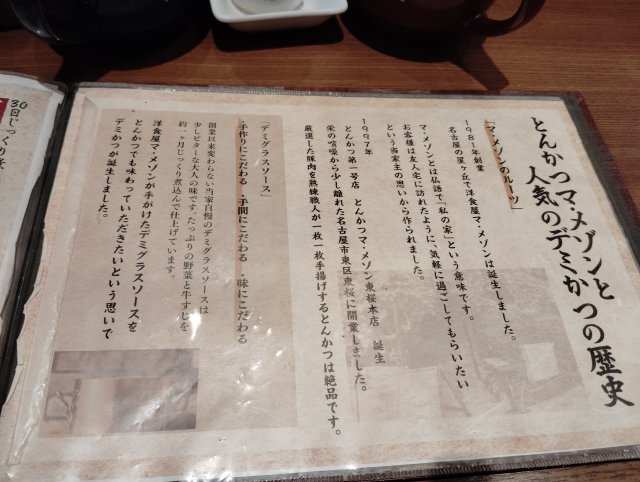 とんかつマ・メゾンと
人気のデミかつの歴史
「マ・メゾンのルーツ」
1981年創業
名古屋の星ヶ丘で洋食屋マ・メゾンは誕生しました。
マ・メゾンとは仏語で「私の家」という意味です。
お客様は友人宅に訪れたように、気軽に過ごしてもらいたい
という当家主の思いから作られました。
1997年
とんかつ第一号店　とんかつマ・メゾン東桜本店　誕生
栄の喧噪から少し離れた名古屋市東区東桜に開業しました。
厳選した豚肉を熟練職人が一枚一枚手揚げするとんかつは絶品です。
「デミグラスソース」
・手作りにこだわる ・手間にこだわる ・味にこだわる
創業以来変わらない当家自慢のデミグラスソースは
少しビターな大人の味です。たっぷりの野菜と牛すじを
約一ヶ月じっくり煮込んで仕上げています。
洋食屋マ・メゾンが手がけたデミグラスソースを
とんかつでも味わっていただきたいという思いで
デミかつが誕生しました。
30日じっくり